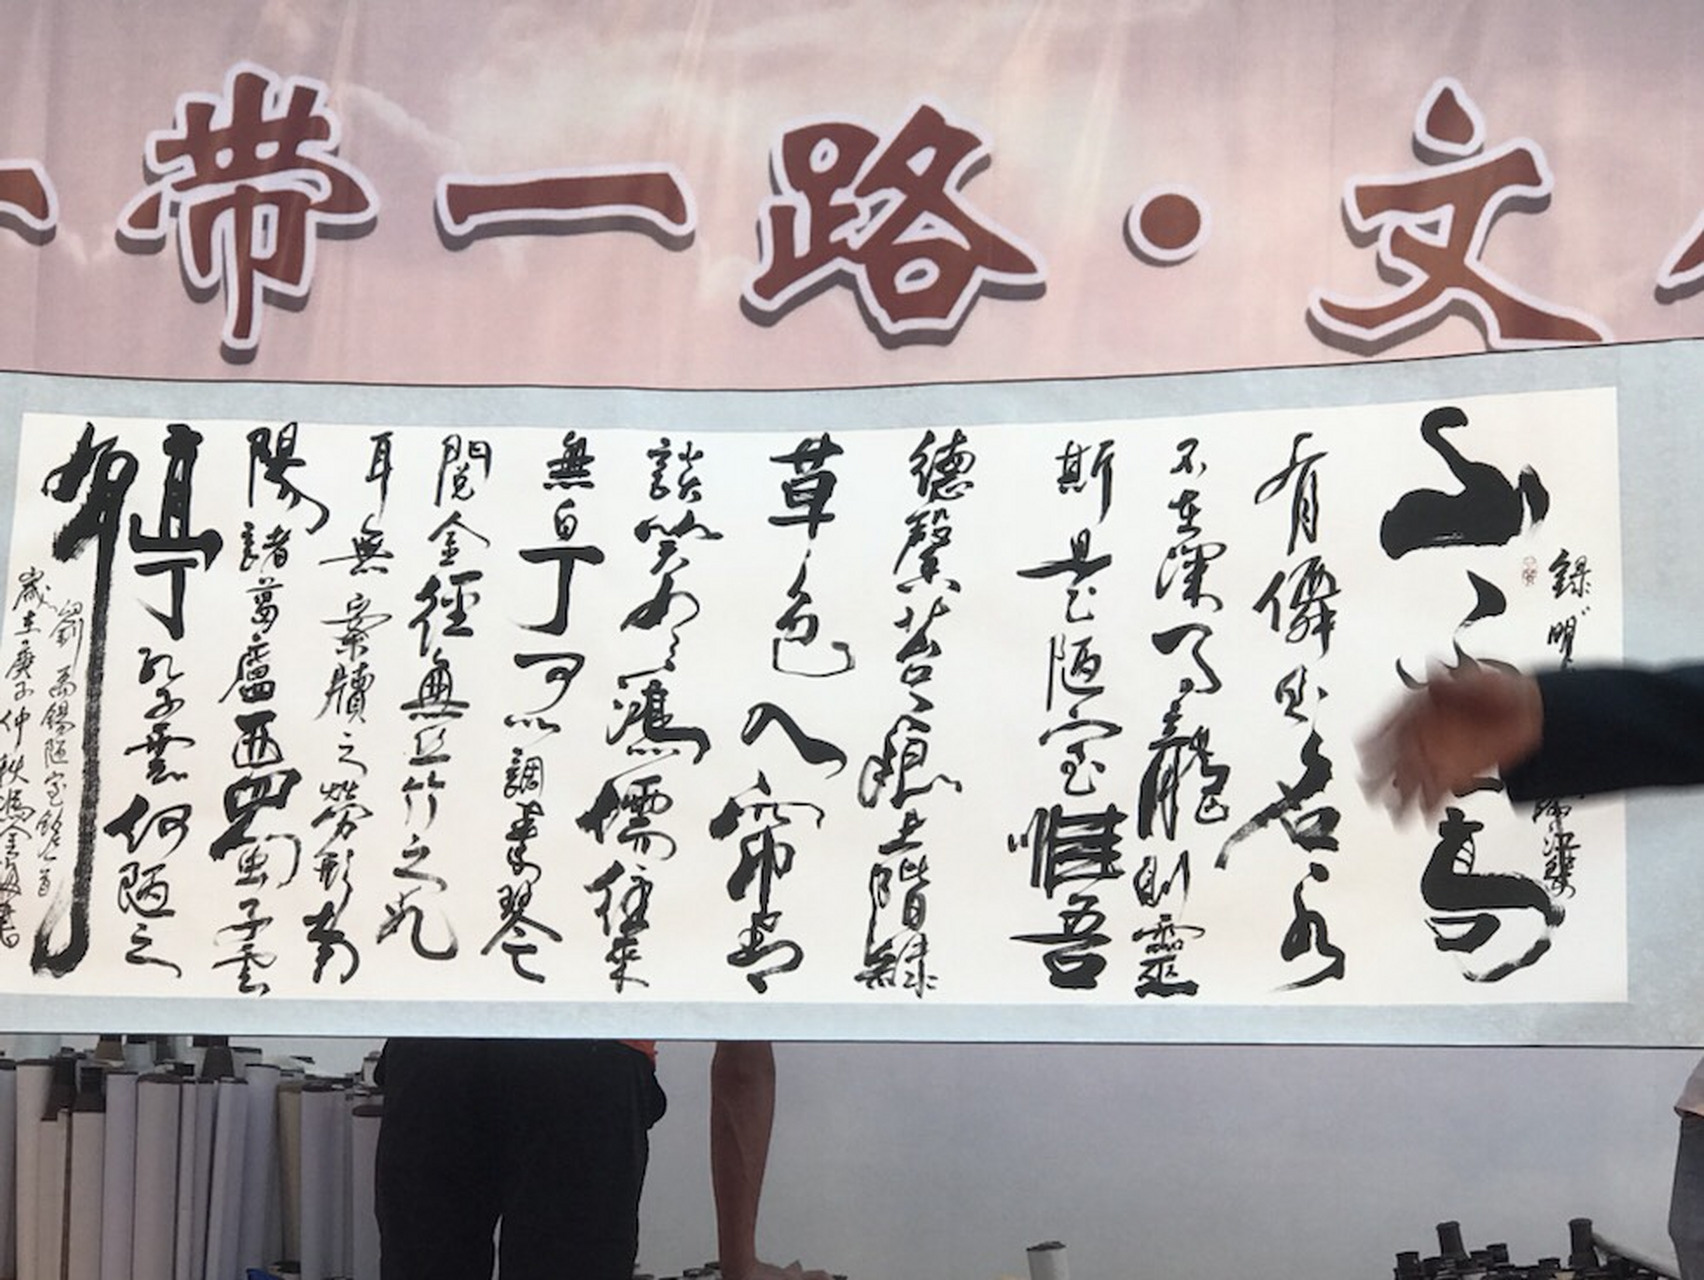 一带一路·文
録明
山
高
有僊則名水
不在深有龍則靈
斯是陋室惟吾
德馨苔痕上階緑
草色入簾青
談笑有鴻儒往來
無白丁可以調素琴
閲金徑無絲竹之亂
耳無案牘之勞形南
陽諸葛廬西蜀子雲
亭孔子雲何陋之
有
劉禹錫陋室銘一首
歲在庚子仲秋馮金書